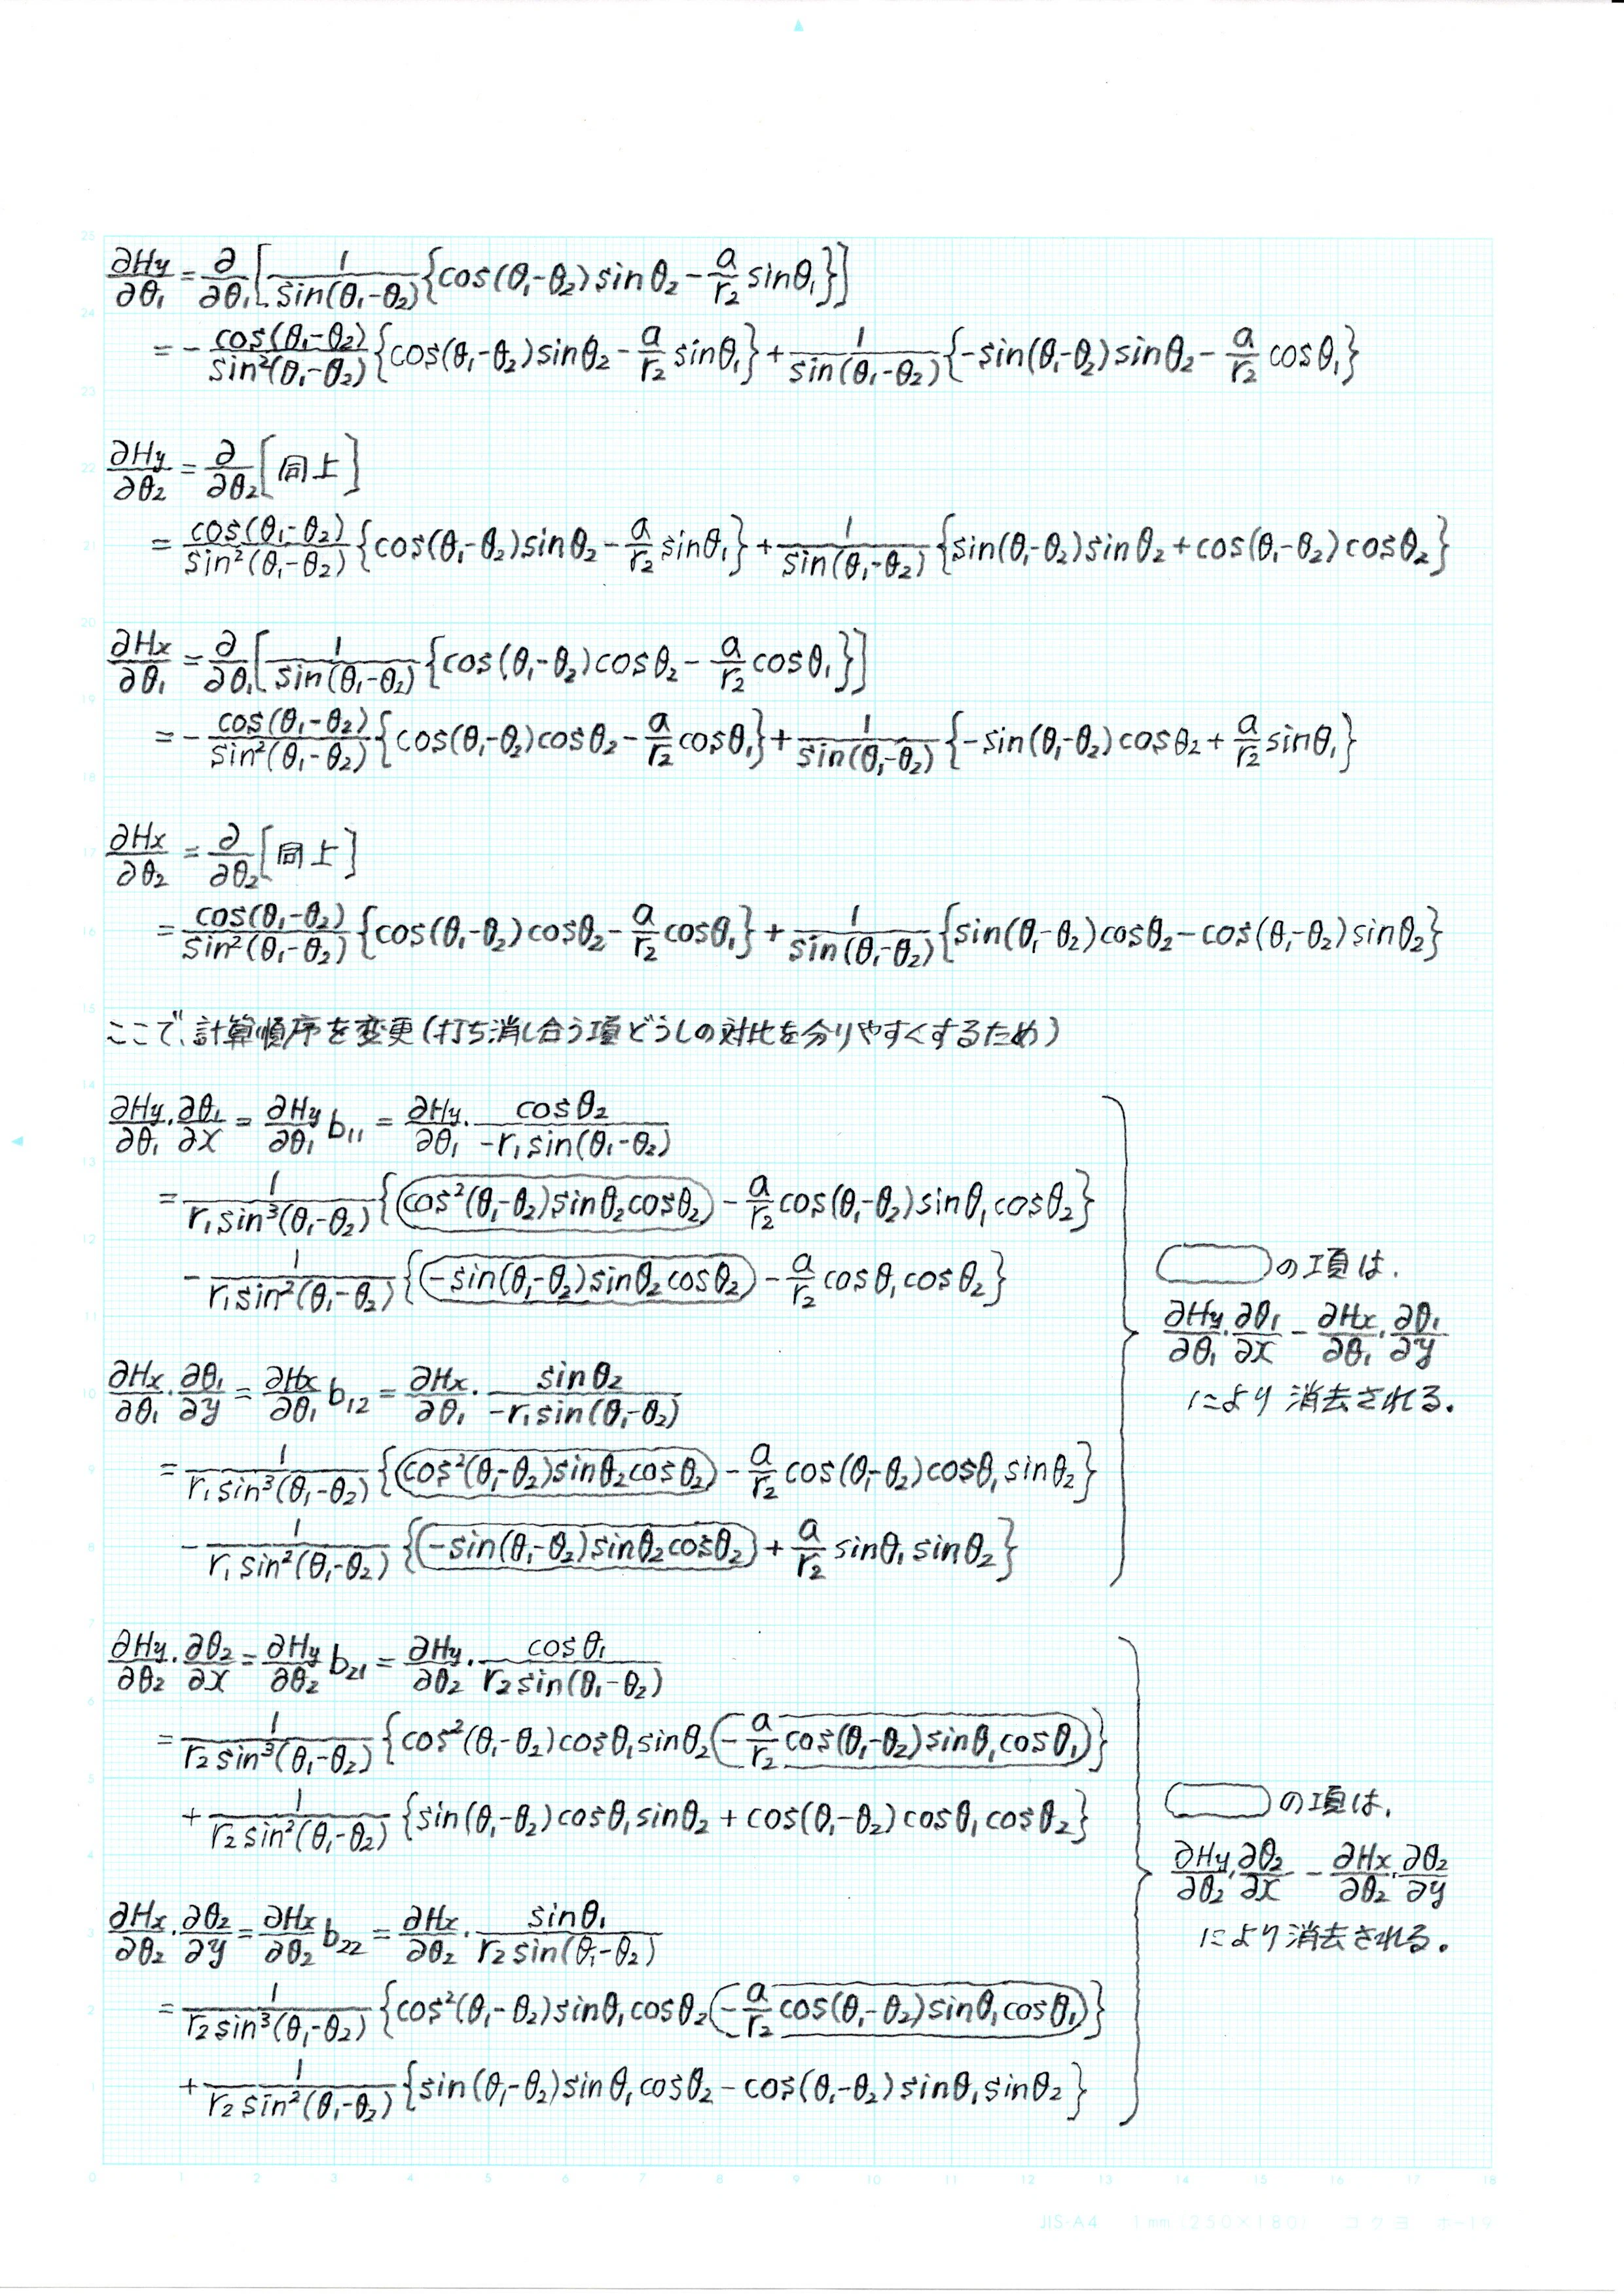 ∂Hy/∂θ₁ = ∂/∂θ₁[1/sin(θ₁-θ₂){cos(θ₁-θ₂)sinθ₂ - a/r₂ sinθ₁}]
= - cos(θ₁-θ₂)/sin²(θ₁-θ₂){cos(θ₁-θ₂)sinθ₂ - a/r₂ sinθ₁} + 1/sin(θ₁-θ₂){-sin(θ₁-θ₂)sinθ₂ - a/r₂ cosθ₁}
∂Hy/∂θ₂ = ∂/∂θ₂[同上]
= cos(θ₁-θ₂)/sin²(θ₁-θ₂){cos(θ₁-θ₂)sinθ₂ - a/r₂ sinθ₁} + 1/sin(θ₁-θ₂){sin(θ₁-θ₂)sinθ₂ + cos(θ₁-θ₂)cosθ₂}
∂Hx/∂θ₁ = ∂/∂θ₁[1/sin(θ₁-θ₂){cos(θ₁-θ₂)cosθ₂ - a/r₂ cosθ₁}]
= - cos(θ₁-θ₂)/sin²(θ₁-θ₂){cos(θ₁-θ₂)cosθ₂ - a/r₂ cosθ₁} + 1/sin(θ₁-θ₂){-sin(θ₁-θ₂)cosθ₂ + a/r₂ sinθ₁}
∂Hx/∂θ₂ = ∂/∂θ₂[同上]
= cos(θ₁-θ₂)/sin²(θ₁-θ₂){cos(θ₁-θ₂)cosθ₂ - a/r₂ cosθ₁} + 1/sin(θ₁-θ₂){sin(θ₁-θ₂)cosθ₂ - cos(θ₁-θ₂)sinθ₂}
ここで、計算順序を変更(打ち消し合う項どうしの対比を分りやすくするため)
∂Hy/∂θ₁・∂θ₁/∂x = ∂Hy/∂θ₁ b₁₁ = ∂Hy/∂θ₁・cosθ₂/-r₁sin(θ₁-θ₂)
= 1/r₁sin³(θ₁-θ₂){cos²(θ₁-θ₂)sinθ₂cosθ₂ - a/r₂ cos(θ₁-θ₂)sinθ₁cosθ₂}
- 1/r₁sin²(θ₁-θ₂){-sin(θ₁-θ₂)sinθ₂cosθ₂ - a/r₂ cosθ₁cosθ₂}
∂Hx/∂θ₁・∂θ₁/∂y = ∂Hx/∂θ₁ b₁₂ = ∂Hx/∂θ₁・sinθ₂/-r₁sin(θ₁-θ₂)
= 1/r₁sin³(θ₁-θ₂){cos²(θ₁-θ₂)sinθ₂cosθ₂ - a/r₂ cos(θ₁-θ₂)cosθ₁sinθ₂}
- 1/r₁sin²(θ₁-θ₂){-sin(θ₁-θ₂)sinθ₂cosθ₂ + a/r₂ sinθ₁sinθ₂}
の項は、
∂Hy/∂θ₁・∂θ₁/∂x - ∂Hx/∂θ₁・∂θ₁/∂y
により消去される。
∂Hy/∂θ₂・∂θ₂/∂x = ∂Hy/∂θ₂ b₂₁ = ∂Hy/∂θ₂・cosθ₁/r₂sin(θ₁-θ₂)
= 1/r₂sin³(θ₁-θ₂){cos²(θ₁-θ₂)cosθ₁sinθ₂ - a/r₂ cos(θ₁-θ₂)sinθ₁cosθ₁}
+ 1/r₂sin²(θ₁-θ₂){sin(θ₁-θ₂)cosθ₁sinθ₂ + cos(θ₁-θ₂)cosθ₁cosθ₂}
∂Hx/∂θ₂・∂θ₂/∂y = ∂Hx/∂θ₂ b₂₂ = ∂Hx/∂θ₂・sinθ₁/r₂sin(θ₁-θ₂)
= 1/r₂sin³(θ₁-θ₂){cos²(θ₁-θ₂)sinθ₁cosθ₂ - a/r₂ cos(θ₁-θ₂)sinθ₁cosθ₁}
+ 1/r₂sin²(θ₁-θ₂){sin(θ₁-θ₂)sinθ₁cosθ₂ - cos(θ₁-θ₂)sinθ₁sinθ₂}
の項は、
∂Hy/∂θ₂・∂θ₂/∂x - ∂Hx/∂θ₂・∂θ₂/∂y
により消去される。
25
24
23
22
21
20
19
18
17
16
15
14
13
12
11
10
9
8
7
6
5
4
3
2
1
0 1 2 3 4 5 6 7 8 9 10 11 12 13 14 15 16 17 18
JIS-A4 1mm(250×180) コクヨ ホ-19